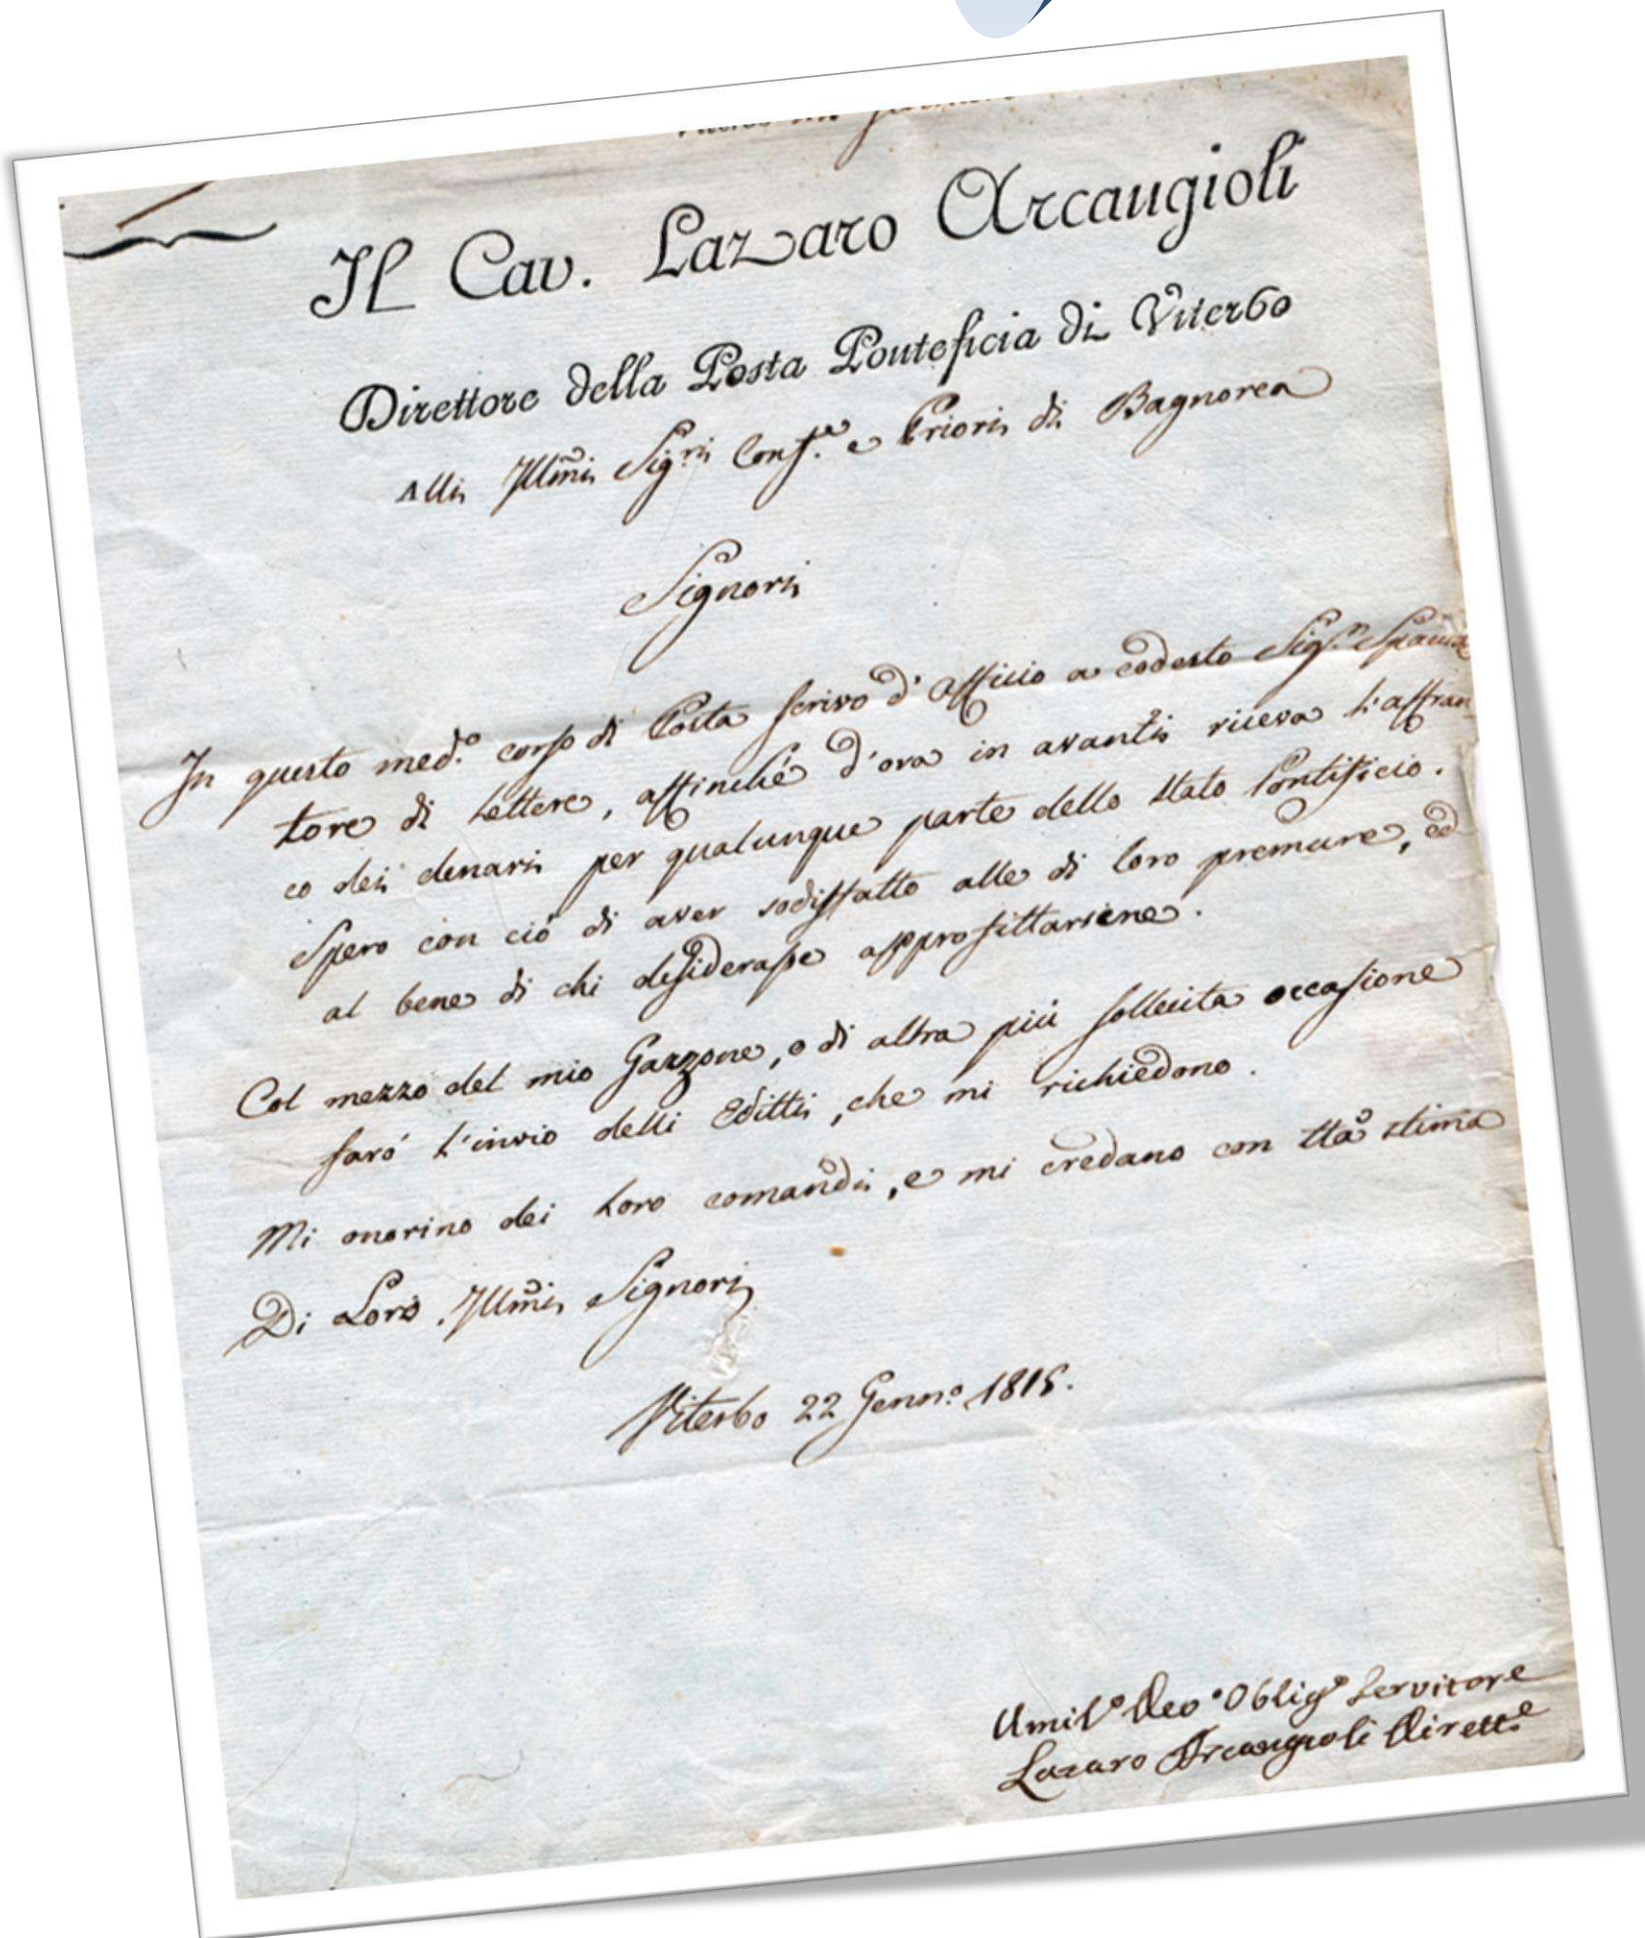 Il Cav. Lazaro Arcangioli
Direttore della Posta Ponteficia di Viterbo
Alli Illm̃i Sig.ri Conf.e e Priori di Bagnorea
Signori
In questo med.o corso di Posta scrivo d'Officio a codesto Sig.r
tore di Lettere, affinché d'ora in avanti riceva l'affran
co dei denari per qualunque parte dello Stato Pontificio.
Spero con ciò di aver sodisfatto alle di loro premure, ed
al bene di chi desiderasse approfittarsene.
Col mezzo del mio Garzone, o di altra più sollecita occasione
farò l'invio delli Editti, che mi richiedono.
Mi onorino dei Loro comandi, e mi credano con tta stima
Di Loro Illm̃i Signori
Viterbo 22 Genn.o 1815.
Umil.o Deo.o Oblig.o Servitore
Lazaro Arcangioli Dirett.e